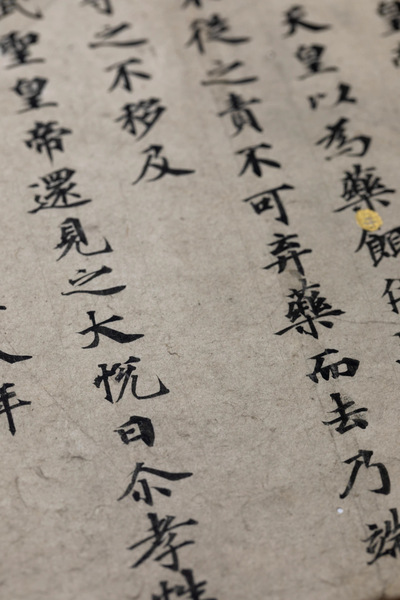 天皇以為藥
從之責不可弃藥而去乃端
之不移及
聖皇帝還見之大悅曰尒孝
年